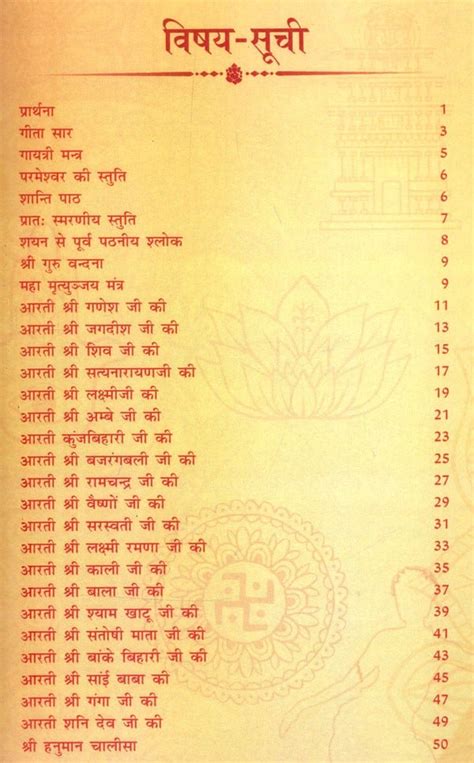 विषय-सूची
प्रार्थना 1
गीता सार 3
गायत्री मन्त्र 5
परमेश्वर की स्तुति 6
शान्ति पाठ 6
प्रातः स्मरणीय स्तुति 7
शयन से पूर्व पठनीय श्लोक 8
श्री गुरु वन्दना 9
महा मृत्युञ्जय मंत्र 9
आरती श्री गणेश जी की 11
आरती श्री जगदीश जी की 13
आरती श्री शिव जी की 15
आरती श्री सत्यनारायणजी की 17
आरती श्री लक्ष्मीजी की 19
आरती श्री अम्बे जी की 21
आरती कुंजबिहारी जी की 23
आरती श्री बजरंगबली जी की 25
आरती श्री रामचन्द्र जी की 27
आरती श्री वैष्णों जी की 29
आरती श्री सरस्वती जी की 31
आरती श्री लक्ष्मी रमणा जी की 33
आरती श्री काली जी की 35
आरती श्री बाला जी की 37
आरती श्री श्याम खाटू जी की 39
आरती श्री संतोषी माता जी की 41
आरती श्री बांके बिहारी जी की 43
आरती श्री सांई बाबा की 45
आरती श्री गंगा जी की 47
आरती शनि देव जी की 49
श्री हनुमान चालीसा 50